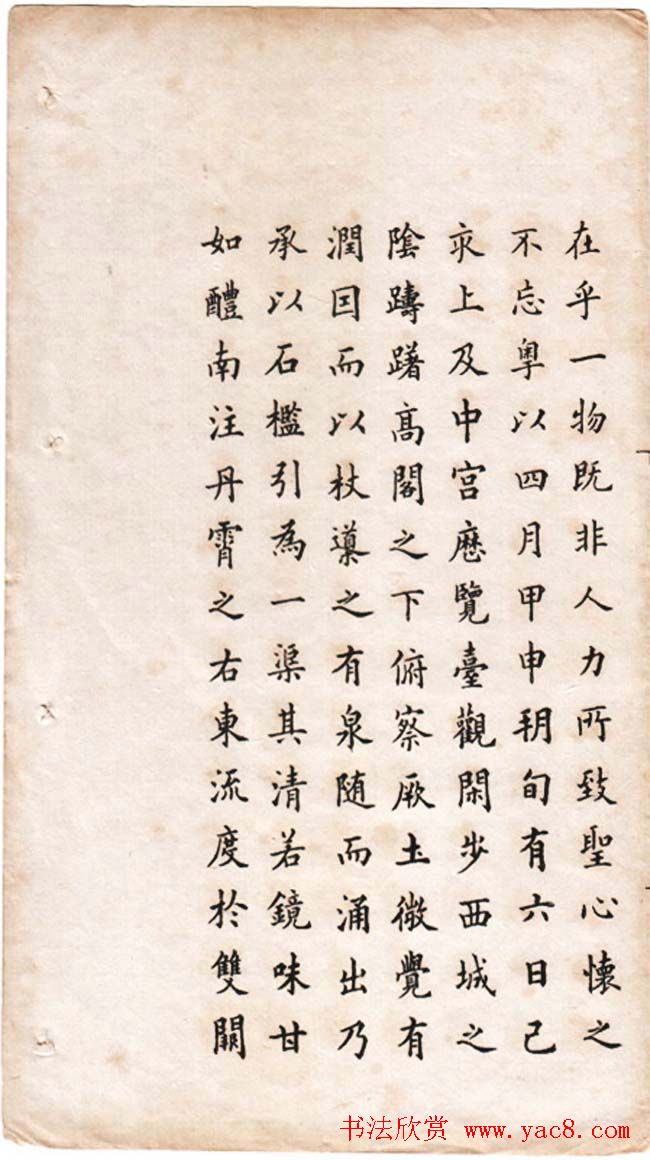 在乎一物既非人力所致聖心懷之
不忘粵以四月甲申朔旬有六日己
亥上及中宮歷覽臺觀閑步西城之
陰躊躇高閣之下俯察厥土微覺有
潤因而以杖導之有泉随而涌出乃
承以石檻引為一渠其清若鏡味甘
如醴南注丹霄之右東流度於雙闕
书法欣赏 www.yac8.com